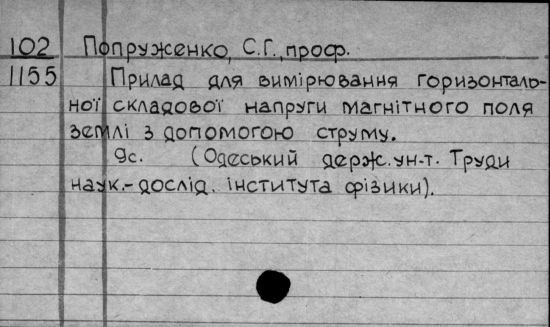 102 Попруженко, С.Г., проф.
1155 Прилад для вимірювання горизонталь-
ної складової напруги магнітного поля
землі з допомогою струму.
9с. (Одеський держ.ун-т. Труди
наук.-дослід. інститута фізики).